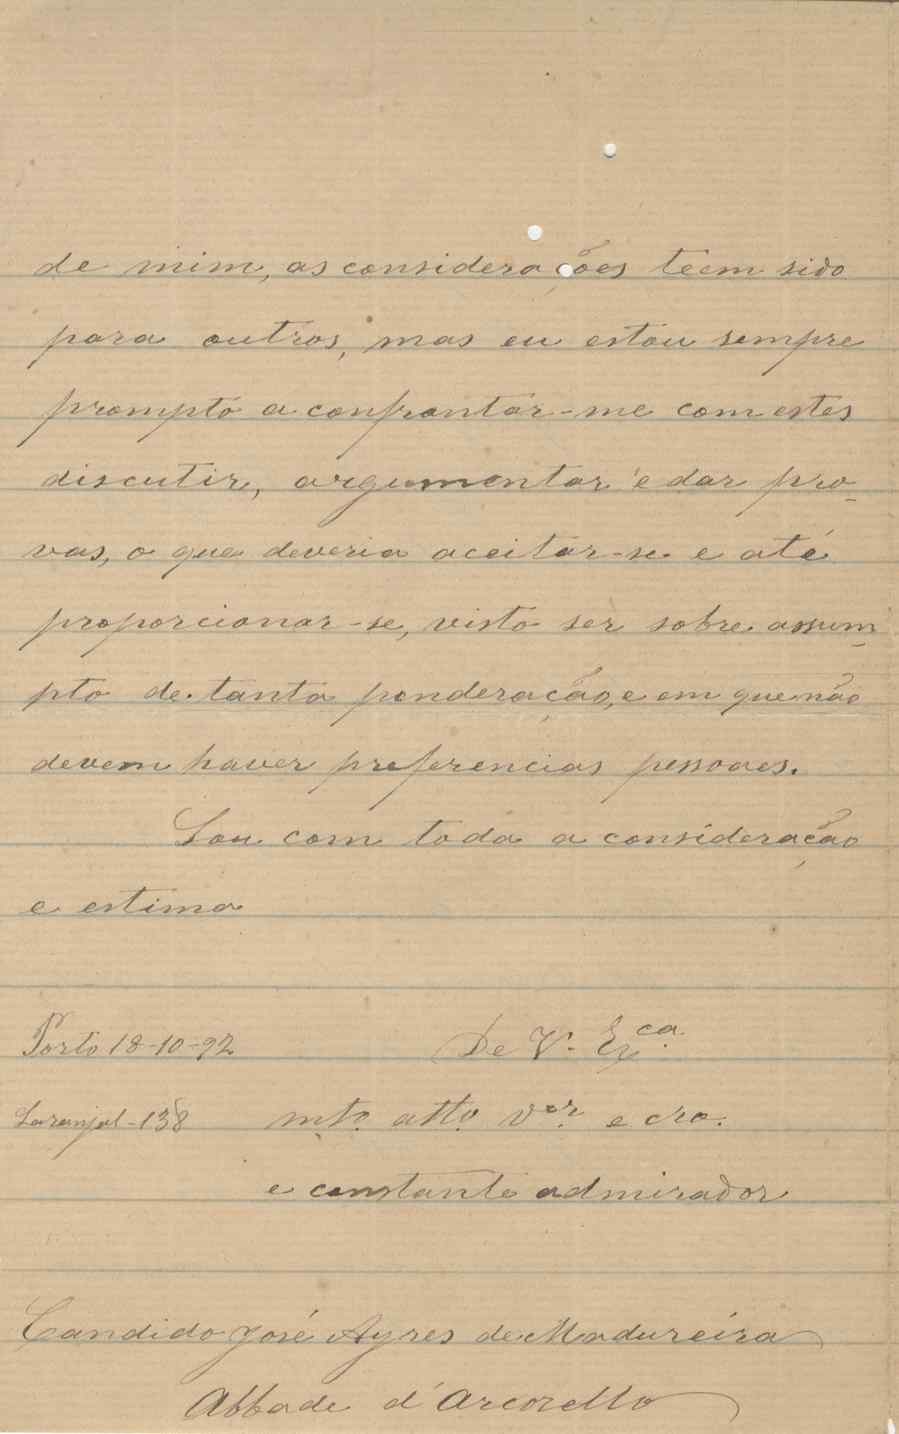 de mim, as considerações teem sido
para outros, mas eu estou sempre
prompto a confrontar-me com estes
discutir, argumentar e dar pro-
vas, o que deveria aceitar-se e até
proporcionar-se, visto ser sobre assum-
pto de tanta ponderação, e em que não
devem haver preferencias pessoaes.
Sou com toda a consideração
e estima
Porto 18-10-92
De V. Ex.ca
Laranjal-138
mto. atto. vor. e cro.
e constante admirador
Candido José Ayres de Madureira
Abbade d'Arcozello